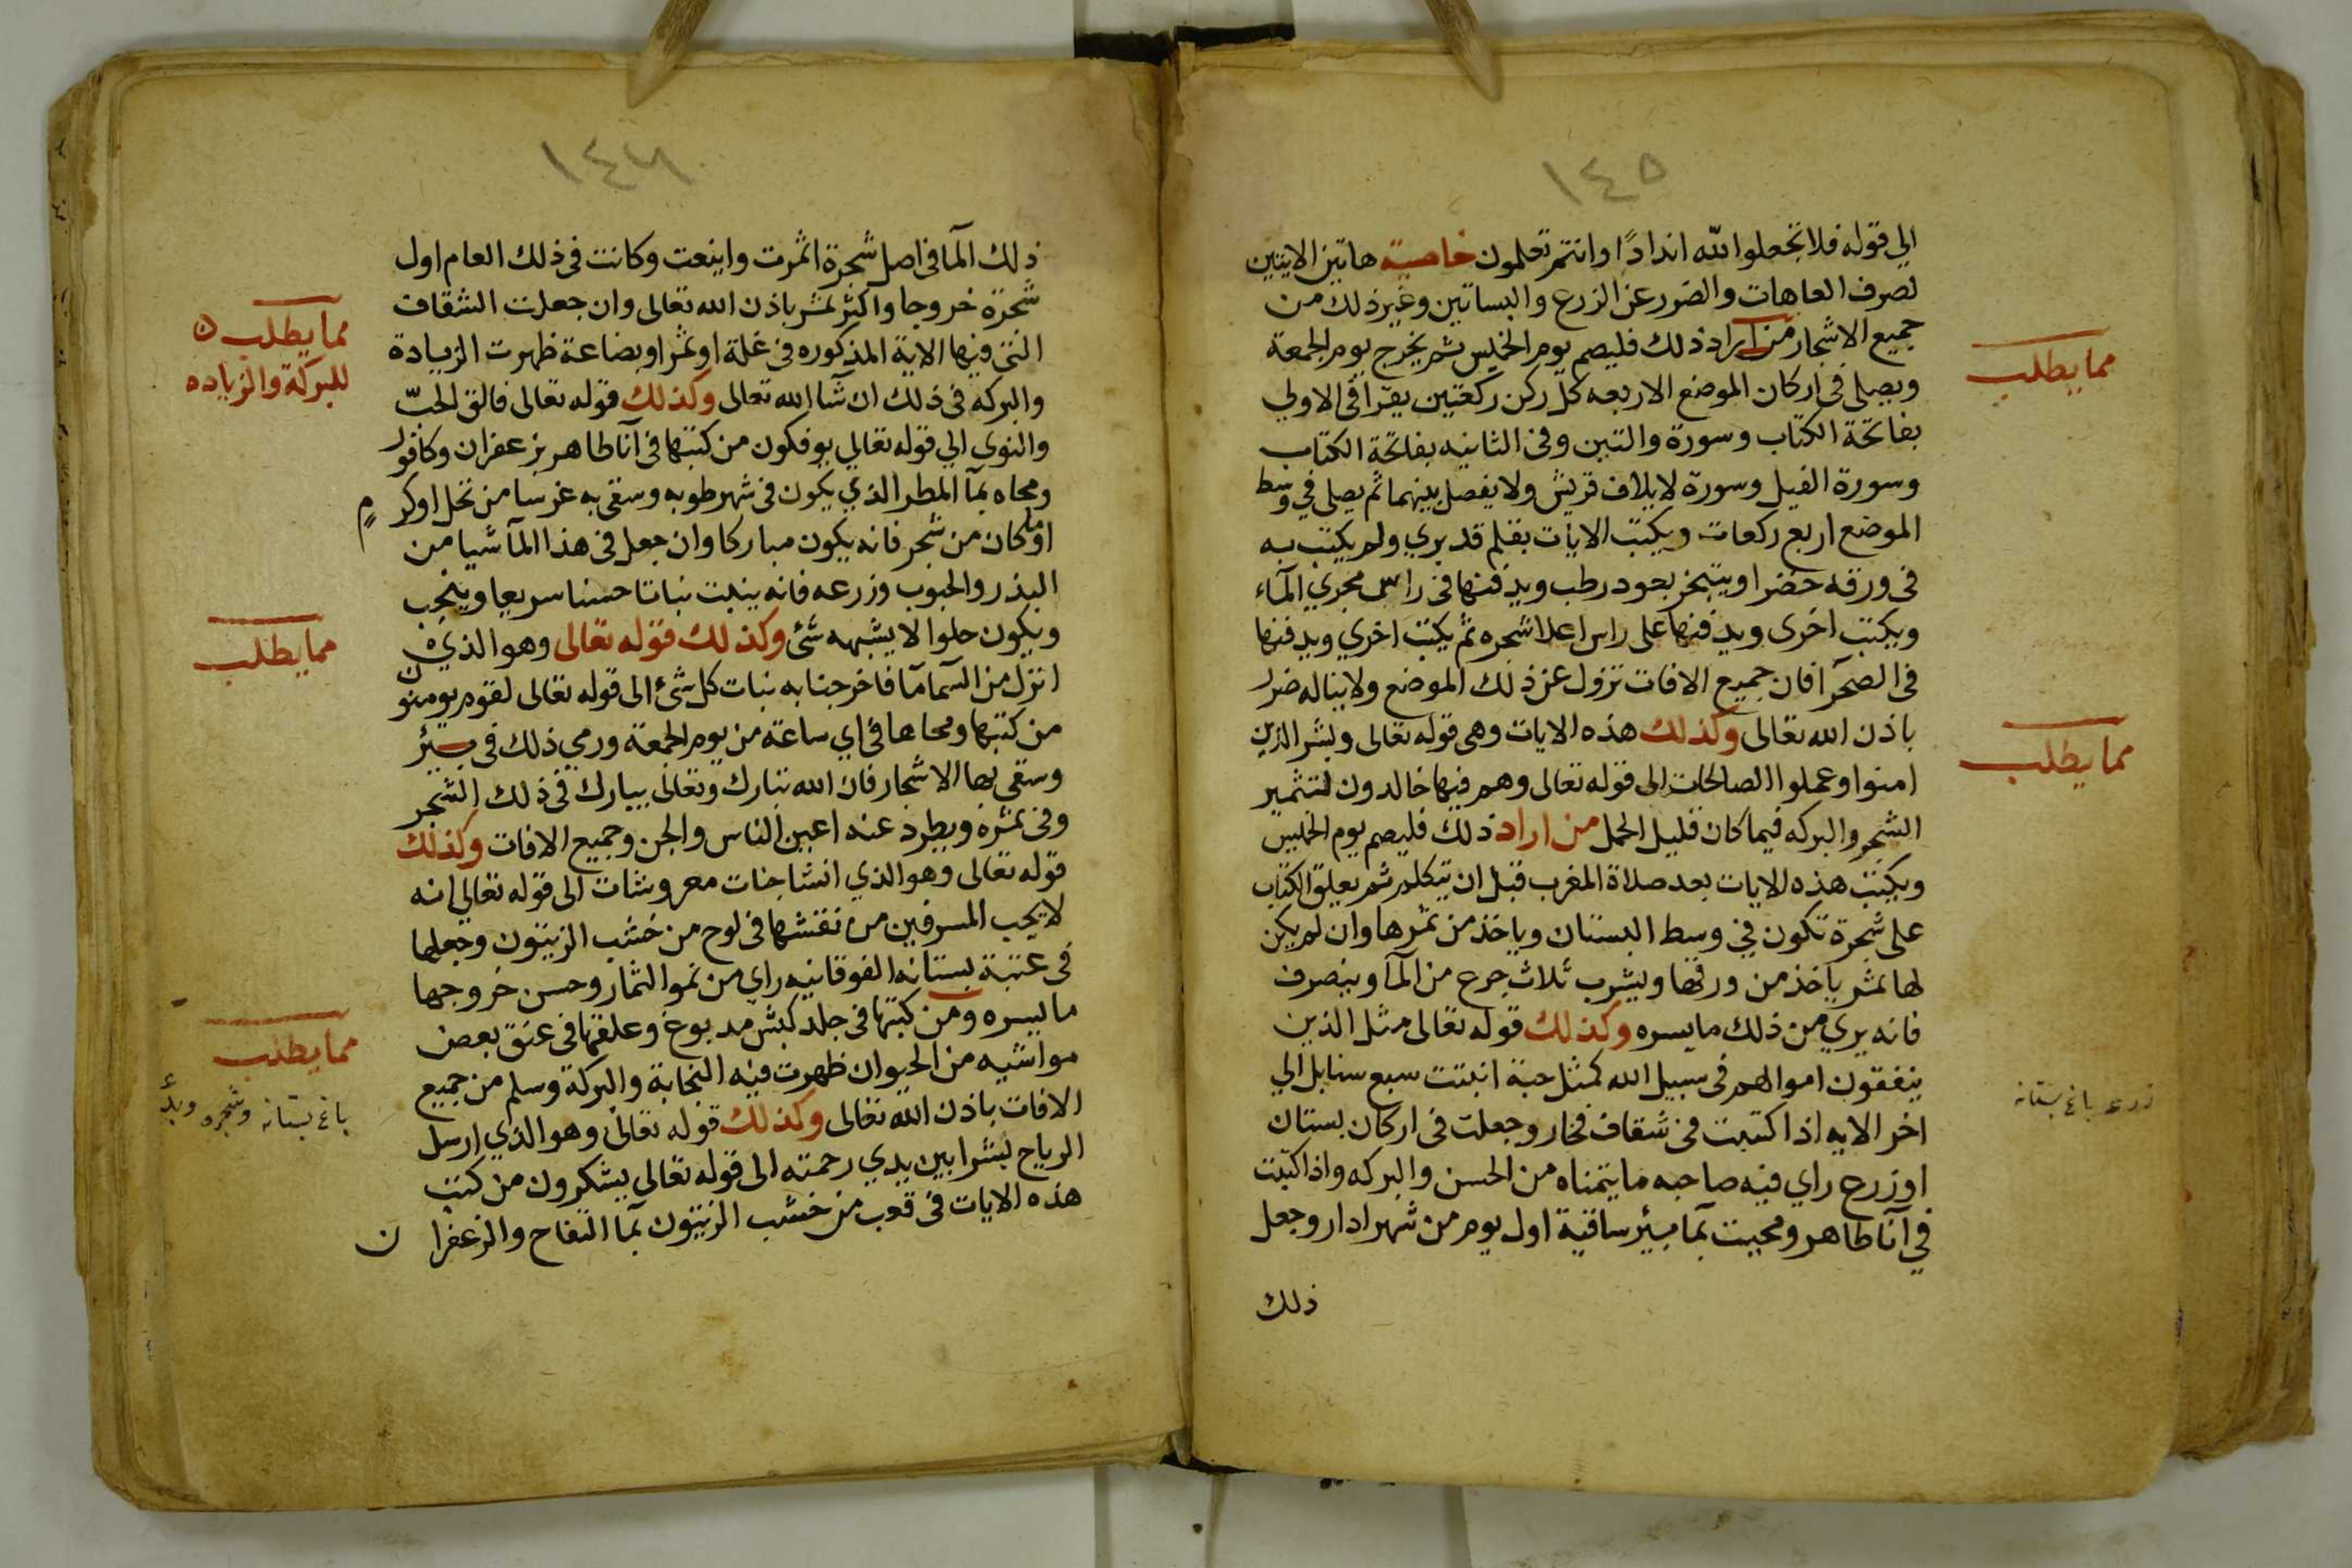 ١٤٥
الي قوله فلا تجعلوا لله اندادًا وانتم تعلمون خاصية هاتين الايتين
لصرف العاهات والضرر عن الزرع والبساتين وغير ذلك من
جميع الاشجار من اراد ذلك فليصم يوم الخميس ثم يخرج يوم الجمعة
ويصلي في اركان الموضع الاربعه كل ركن ركعتين يقرا في الاولي
بفاتحة الكتاب وسورة والتين وفي الثانيه بفاتحة الكتاب
وسورة الفيل وسورة لايلاف قريش ولا يفصل بينهما ثم يصلي في وسط
الموضع اربع ركعات ويكتب الايات بقلم قد بري ولم يكتب به
في ورقه خضرا ويتبخر بعود رطب ويدفنها في راس مجري المآء
ويكتب اخرى ويدفنها على راس اعلا شجره ثم يكتب اخري ويدفنها
في الصحرآ فان جميع الافات تزول عن ذلك الموضع ولا يناله ضرر
باذن الله تعالى وكذلك هذه الايات وهي قوله تعالى وبشر الذين
امنوا وعملوا الصالحات الى قوله تعالى وهم فيها خالدون لتثمير
الشجر والبركه فيما كان قليل الحمل من اراد ذلك فليصم يوم الخميس
ويكتب هذه الايات بعد صلاة المغرب قبل ان يتكلم ثم يعلق الكتاب
على شجرة تكون في وسط البستان وياخذ من ثمرها وان لم يكن
لها ثمر ياخذ من ورقها ويشرب ثلاث جرع من المآ وينصرف
فانه يري من ذلك ما يسره وكذلك قوله تعالى مثل الذين
ينفقون اموالهم في سبيل الله كمثل حبة انبتت سبع سنابل الي
اخر الايه اذا كتبت في شقاف فخار وجعلت في اركان بستان
او زرع راي فيه صاحبه ما يتمناه من الحسن والبركه واذا كتبت
في آنآ طاهر ومحيت بمآ بيئر ساقية اول يوم من شهر ادار وجعل
ذلك
مما يطلب
مما يطلب
زرع باغ بستانه
١٤٦
ذلك المآ في اصل شجرة اثمرت واينعت وكانت في ذلك العام اول
شجرة خروجا واكثر ثمر باذن الله تعالى وان جعلت الشقاف
التي فيها الاية المذكوره في غلة او ثمر او بضاعة ظهرت الزيادة
والبركه في ذلك ان شآ الله تعالى وكذلك قوله تعالى فالق الحبّ
والنوي الي قوله تعالي يوفكون من كتبها في آنا طاهر بزعفران وكافور
ومحاه بمآ المطر الذي يكون في شهر طوبه وسقى به غرسا من نخل او كرم
او ما كان من شجر فانه يكون مباركا وان جعل في هذا المآ شيا من
البذر والحبوب وزرعه فانه ينبت نباتا حسنا سريعا وينجب
ويكون حلوا لا يشبهه شئ وكذلك قوله تعالى وهو الذي
انزل من السمآ مآ فاخرجنا به نبات كل شئ الى قوله تعالى لقوم يومنون
من كتبها ومحاها في اي ساعة من يوم الجمعة ورمي ذلك في بيئر
وسقى بها الاشجار فان الله تبارك وتعالى يبارك في ذلك الشجر
وفي ثمره ويطرد عنه اعين الناس والجن وجميع الافات وكذلك
قوله تعالى وهو الذي انشا جنات معروشات الى قوله تعالي انه
لا يحب المسرفين من نقشها في لوح من خشب الزيتون وجعلها
في عتبة بستانه الفوقانيه راي من نمو الثمار وحسن خروجها
ما يسره ومن كتبها في جلد كبش مدبوغ وعلقها في عنق بعض
مواشيه من الحيوان ظهرت فيه النجابة والبركة وسلم من جميع
الافات باذن الله تعالى وكذلك قوله تعالى وهو الذي ارسل
الرياح بشرا بين يدي رحمته الى قوله تعالي يشكرون من كتب
هذه الايات في قعب من خشب الزيتون بمآ التفاح والزعفران
مما يطلب
للبركة والزياده
مما يطلب
مما يطلب
باغ بستانه وشجره